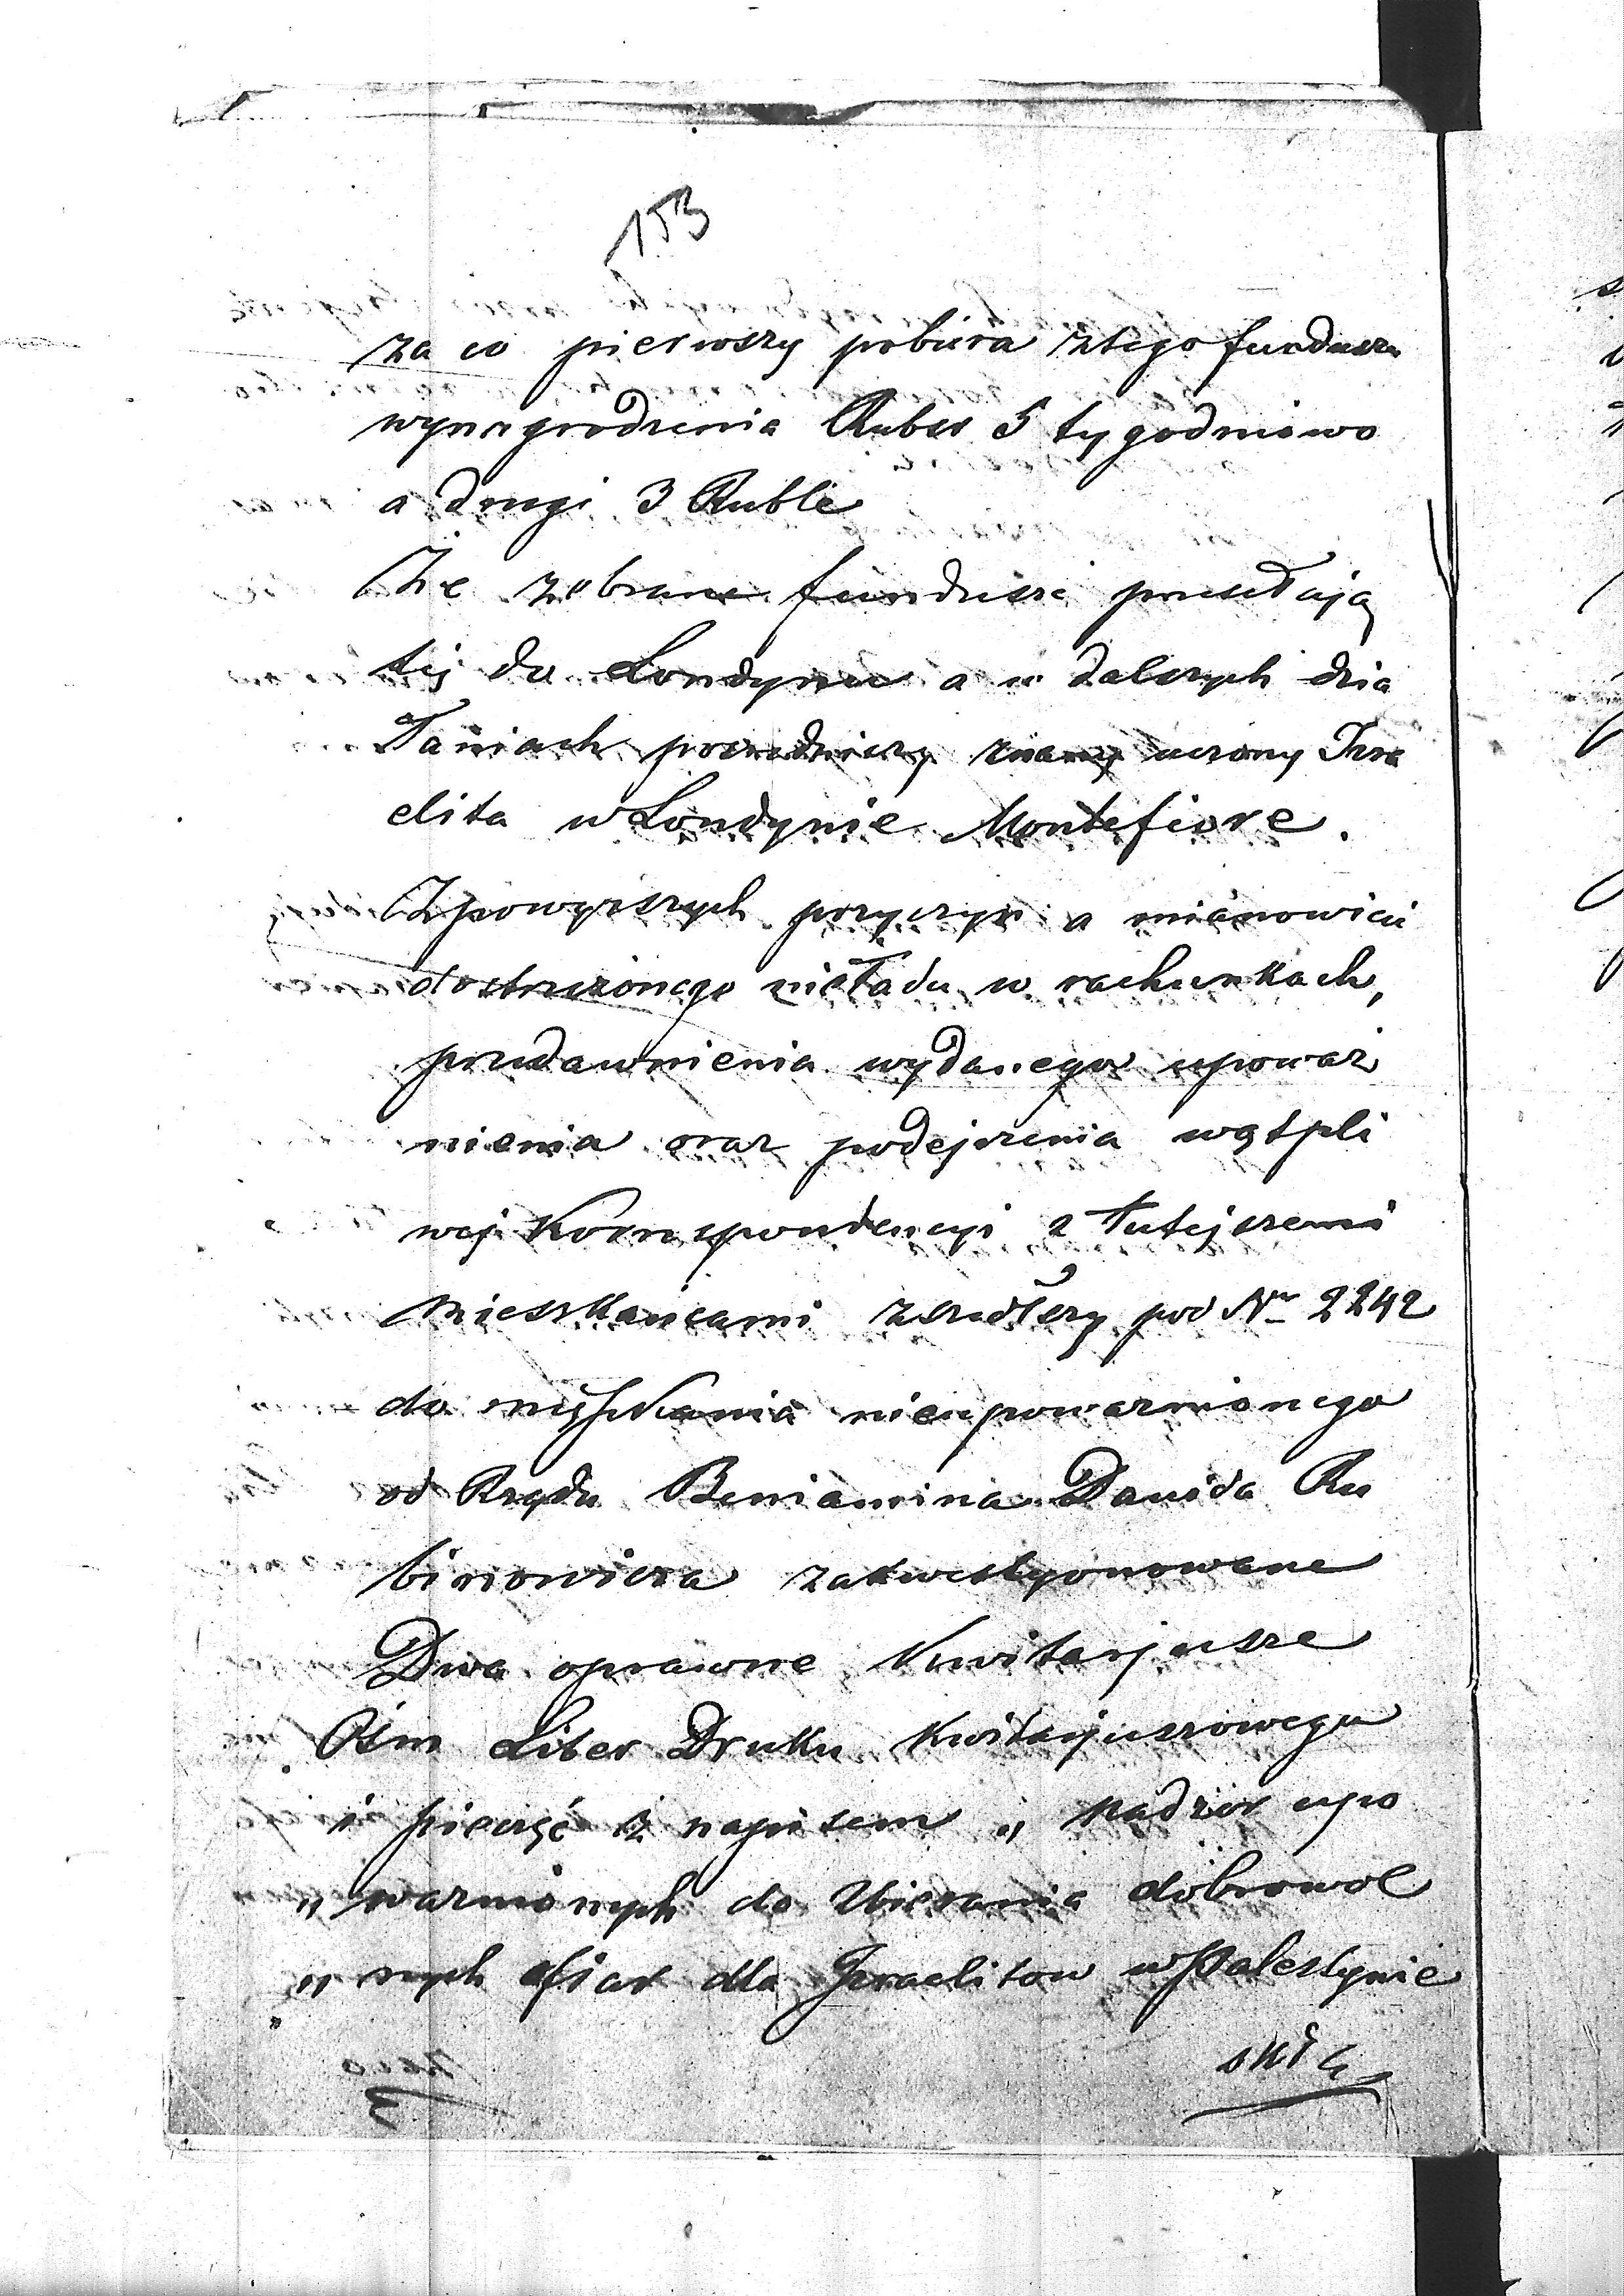 153
za co pierwszy pobiera ztego funduszu
wynagrodzenia Rubsr 5 tygodniowo
a drugi 3 Ruble
Że zebrane fundusze przesełają
się do Londynu a w dalszych dzia
łaniach pośredniczy znany uczony Izra
elita w Londynie Montefiore.
Z powyższych przyczyn a mianowicie
dostrzeżonego nieładu w rachunkach,
przedawnienia wydanego upoważ
nienia oraz podejrzenia wątpli
wej Korrespondencyi z tutejszemi
Mieszkańcami zeszedłszy pod Nr 2242
do mieszkania nieupoważnionego
od Rządu Beniamina Dawida Ru
binowicza zakwestyonowane
Dwa oprawne Kwitaryusze
Ośm Liber Druku Kwitaryuszowego
i pieczęć z napisem „ Nadzór upo
„ ważnionych do Zbierania dobrowol
„ nych ofiar dla Izraelitow w Palestynie
skła